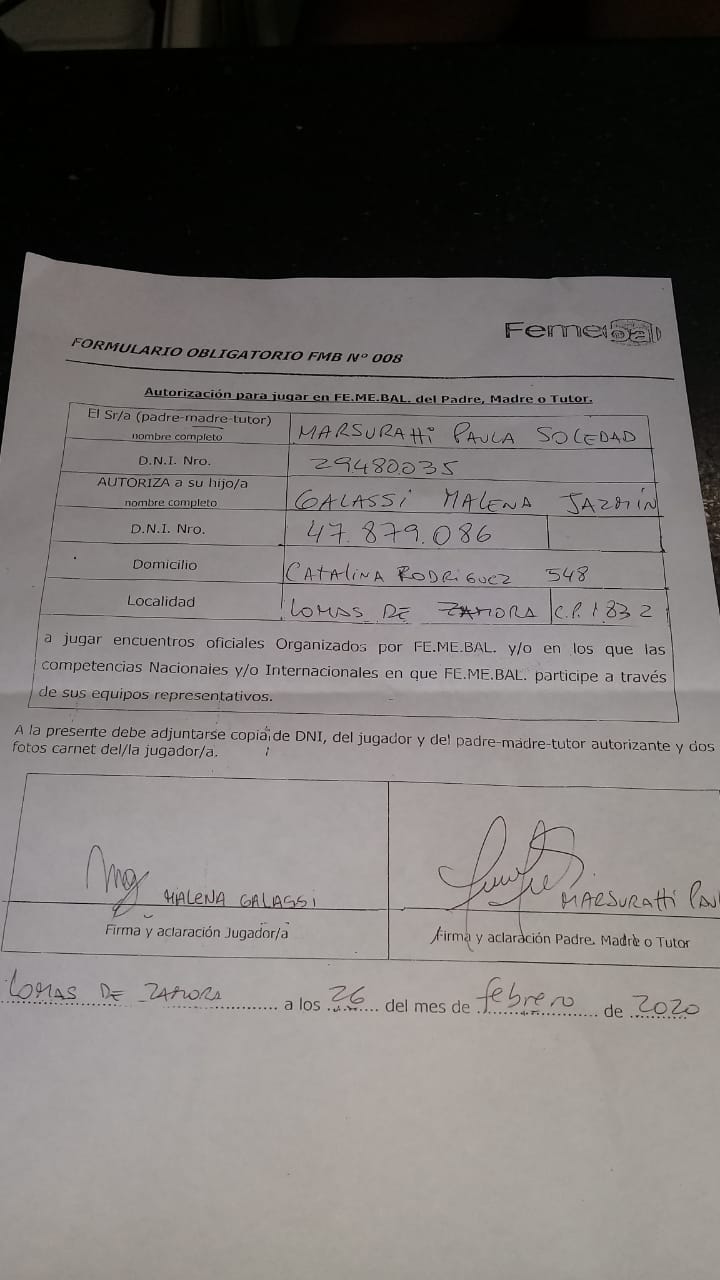 Femebal
FORMULARIO OBLIGATORIO FMB Nº 008
Autorización para jugar en FE.ME.BAL. del Padre, Madre o Tutor.
El Sr/a (padre-madre-tutor)
nombre completo
MARSURATTi PAULA SOLEDAD
D.N.I. Nro.
29.480.035
AUTORIZA a su hijo/a
nombre completo
GALASSi MALENA JAZMÍN
D.N.I. Nro.
47.879.086
Domicilio
CATALINA RODRIGUEZ 548
Localidad
LOMAS DE ZAMORA C.P. 1832
a jugar encuentros oficiales Organizados por FE.ME.BAL. y/o en los que las
competencias Nacionales y/o Internacionales en que FE.ME.BAL. participe a través
de sus equipos representativos.
A la presente debe adjuntarse copia de DNI, del jugador y del padre-madre-tutor autorizante y dos
fotos carnet del/la jugador/a.
MALENA GALASSI
Firma y aclaración Jugador/a
MARSURATTi PAU
Firma y aclaración Padre. Madre o Tutor
LOMAS DE ZAMORA a los 26 del mes de febrero de 2020